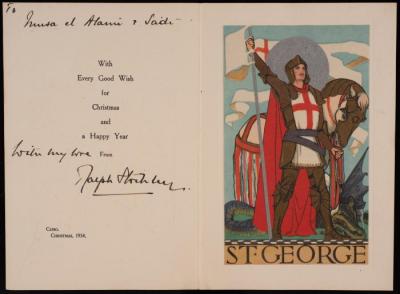 To
Musa el Alami & Saidi
With
Every Good Wish
for
Christmas
and
a Happy Year
With my love From
Ralph
Cairo.
Christmas, 1934.
ST·GEORGE